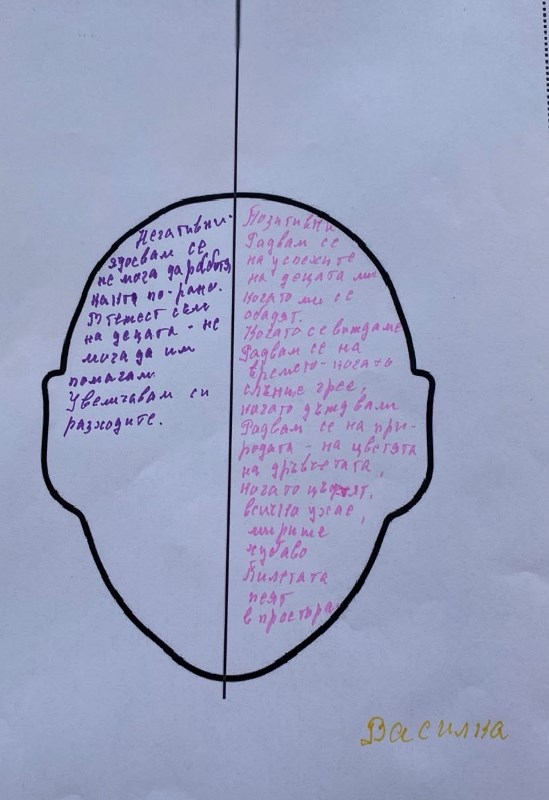 Негативни-
ядосвам се
не мога да работя
както по-рано.
В тежест съм
на децата - не
мога да им
помагам.
Увеличавам си
разходите.
Позитивни
Радвам се
на успехите
на децата ми
когато ми се
обадят.
Когато се виждаме
Радвам се на
времето - когато
слънце грее,
когато дъжд вали
Радвам се на при-
родата - на цветята
на дръвчетата,
когато цъфтят,
всичко ухае,
мирише
хубаво
Пилетата
пеят
в простора
Василка